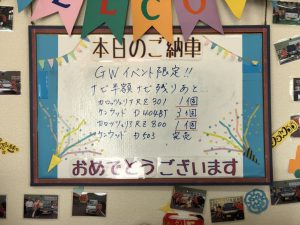 ELCO
本日のご納車
GWイベント限定!!
ナビ半額ナビ残りあと…
カロッツェリアRZ901 1個
ケンウッド D404BT 3個
カロッツェリアRZ800 1個
ケンウッド D503 完売
おめでとうございます